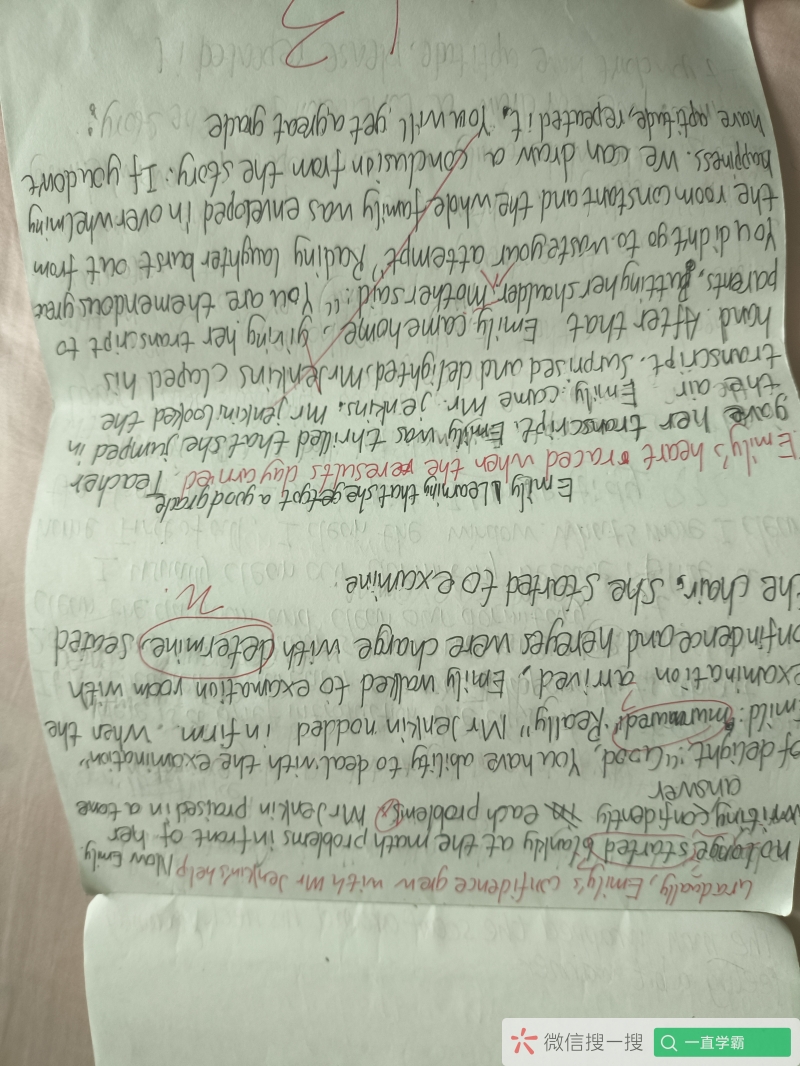 Gradually, Emily's confidence grew with Mr Jenkins's help Now Emily
no longe started blankly at the math problems in front of her
writing confidently each problems Mr Jenkin praised in a tone
answer
of delight "Good, You have ability to deal with the examination"
Emily murmured "Really" Mr Jenkin nodded in firm. When the
examination arrived, Emily walked to examation room with
confidence and her eyes were charge with determine, seated
the chair, she started to examine
Emily Learning that she got a good grade
Emily's heart raced when the results day arrived Teacher
gave her transcript. Emily was thrilled that she jumped in
the air Emily came Mr. Jenkins. Mr jenkin looked the
transcript. Surprised and delighted, Mr Jenkins claped his
hand After that Emily came home, giving her transcript to
parents, Putting her shoulder, mother said: "You are themendous grea
You didn't go to waste your attempt" Rading laughter burst out from
the room constant and the whole family was enveloped in overwhelming
happiness. We can draw a conclusion from the story: If you don't
have aptitude, repeated it. You will get a great grade
13
微信搜一搜
一直学霸